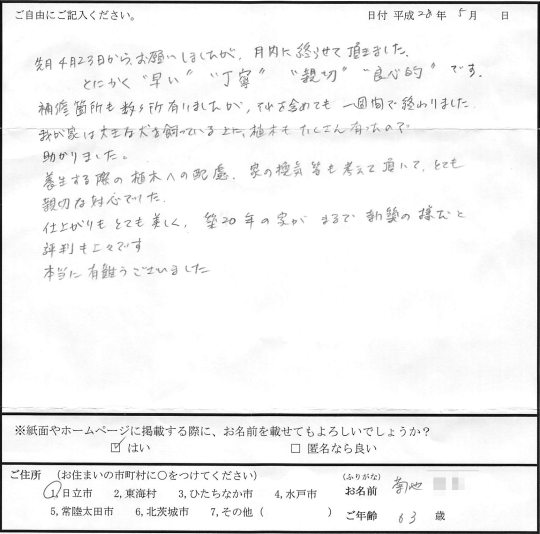 ご自由にご記入ください。　日付 平成28年 5月　日
先月4月23日からお願いしましたが、月内に終らせて頂きました。
とにかく“早い”“丁寧”“親切”“良心的”です。
補修箇所も数ヶ所有りましたが、それを含めても一週間で終わりました。
我が家は大きな犬を飼っている上に、植木もたくさん有ったので
助かりました。
養生する際の植木への配慮、家の換気等も考えて頂いて、とても
親切な対応でした。
仕上がりもとても美しく、築20年の家がまるで新築の様だと
評判も上々です
本当に有難うございました
※紙面やホームページに掲載する際に、お名前を載せてもよろしいでしょうか？
☑ はい　□ 匿名なら良い
ご住所 (お住まいの市町村に○をつけてください)
1,日立市 2,東海村 3,ひたちなか市 4,水戸市
5,常陸太田市 6,北茨城市 7,その他（　　　）
(ふりがな)
お名前 菊池
ご年齢 63 歳